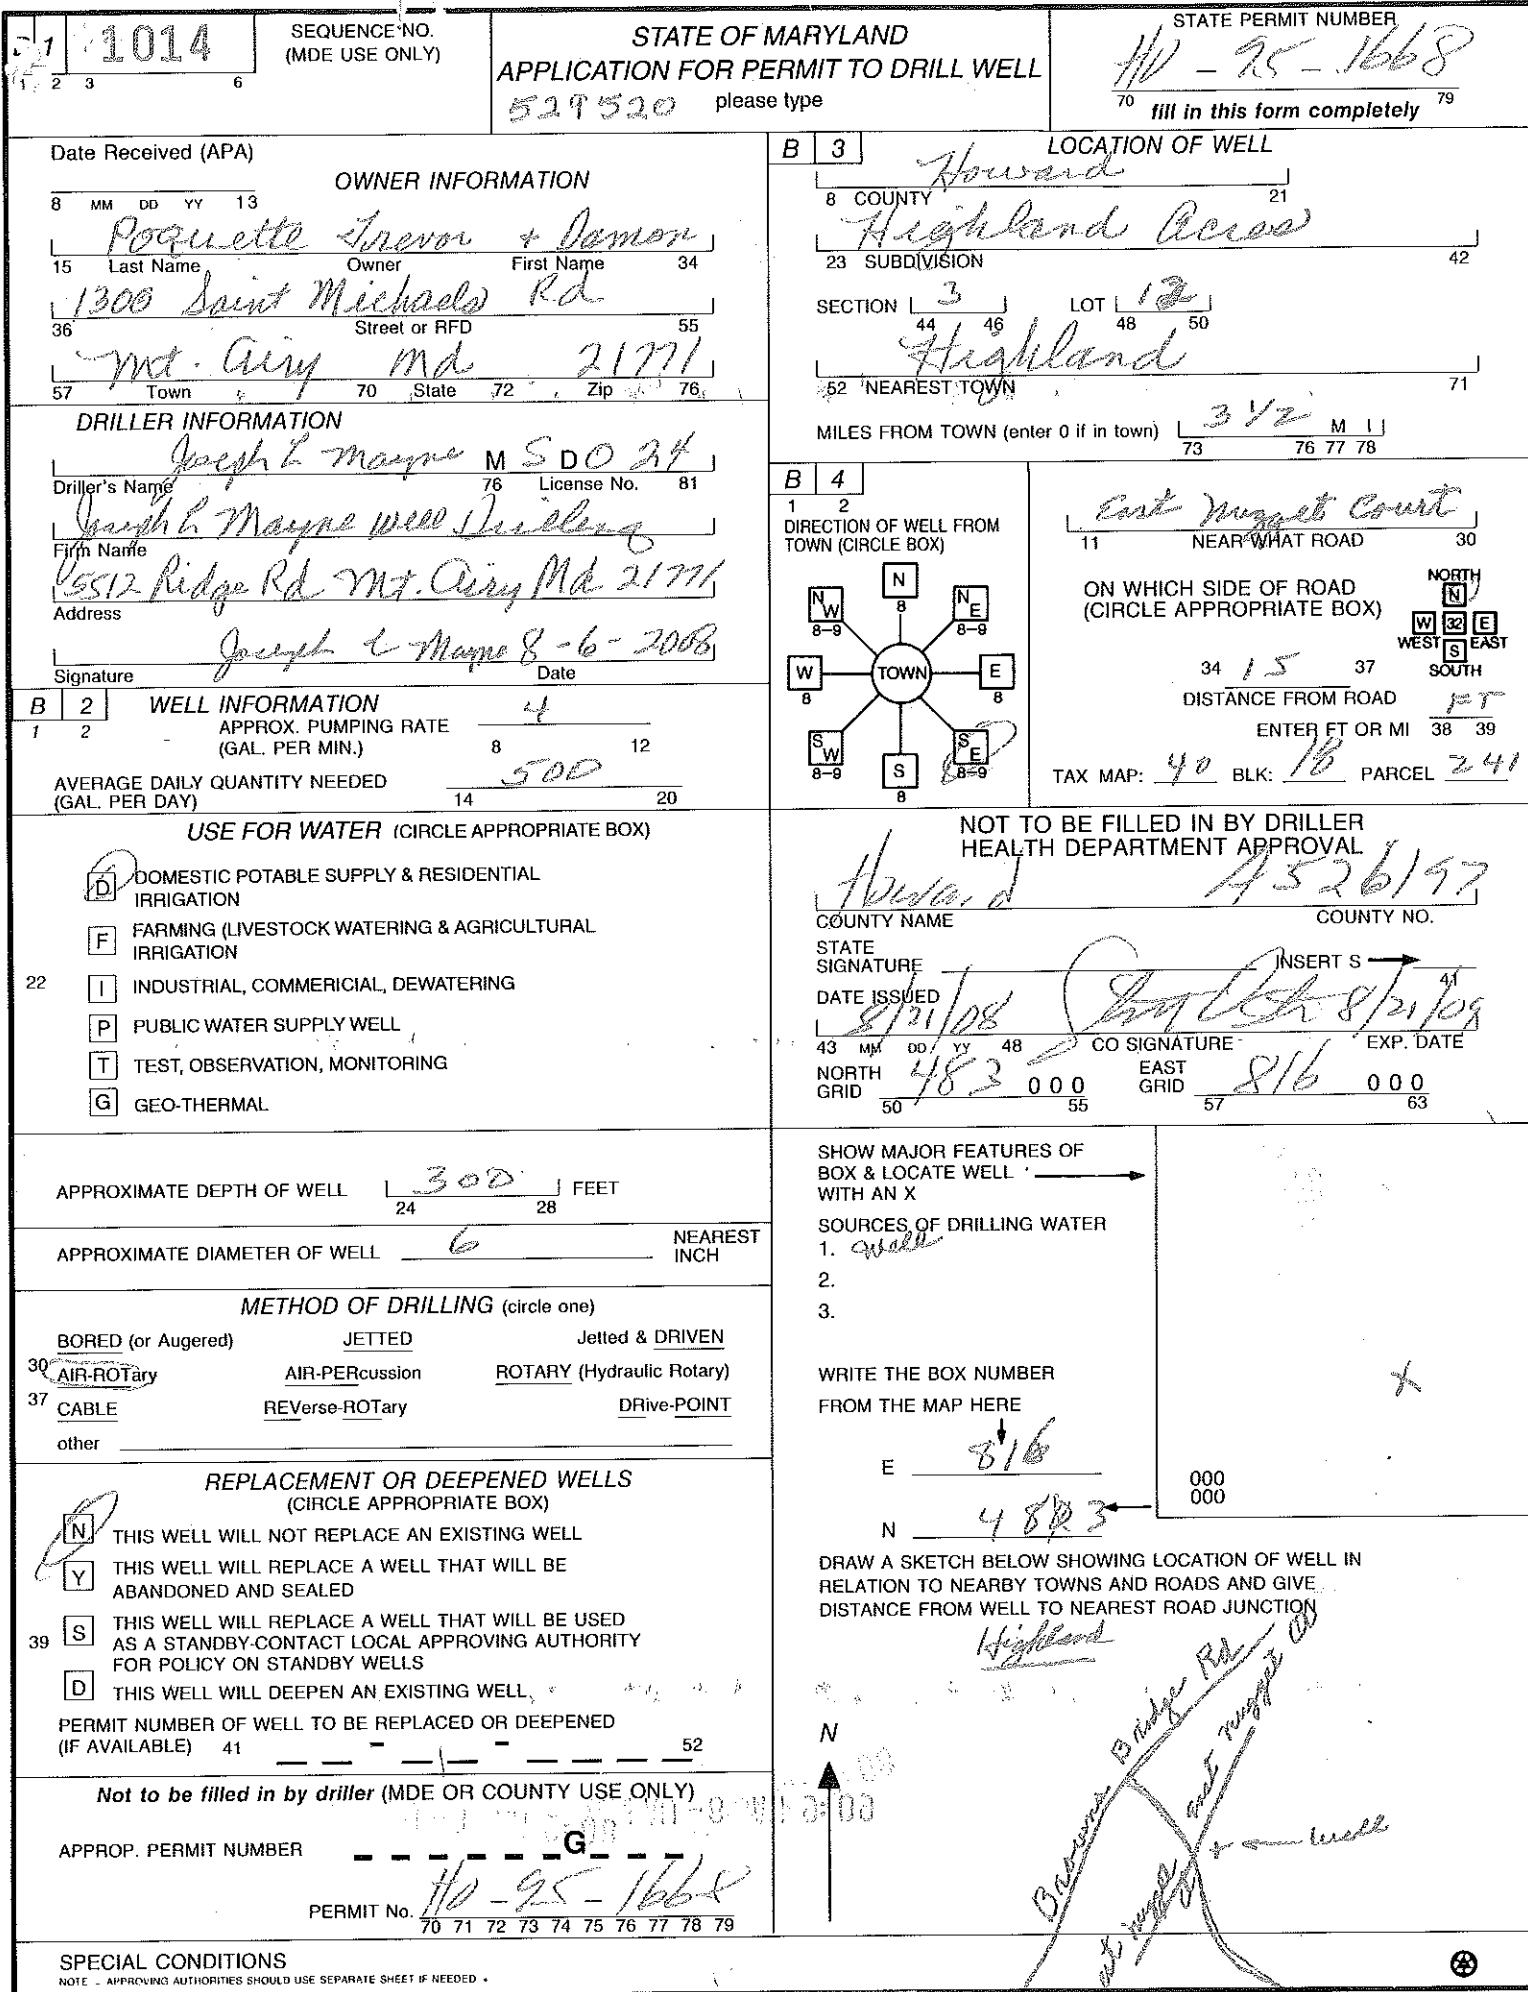 1014
SEQUENCE NO.
(MDE USE ONLY)
1 2 3 6
STATE OF MARYLAND
APPLICATION FOR PERMIT TO DRILL WELL
529520 please type
STATE PERMIT NUMBER
HO - 95 - 1668
70 79
fill in this form completely
Date Received (APA)
OWNER INFORMATION
8 MM DD YY 13
Poquette Trevor + Damon
15 Last Name Owner First Name 34
1306 Saint Michaels Rd
36 Street or RFD 55
Mt. Airy Md 21771
57 Town 70 State 72 Zip 76
DRILLER INFORMATION
Joseph L Mayne M S D O 24
Driller's Name 76 License No. 81
Joseph L Mayne Well Drilling
Firm Name
5512 Ridge Rd Mt. Airy Md 21771
Address
Joseph L Mayne 8-6-2008
Signature Date
B 2 WELL INFORMATION
1 2
APPROX. PUMPING RATE 4
(GAL. PER MIN.) 8 12
AVERAGE DAILY QUANTITY NEEDED 500
(GAL. PER DAY) 14 20
USE FOR WATER (CIRCLE APPROPRIATE BOX)
D DOMESTIC POTABLE SUPPLY & RESIDENTIAL
IRRIGATION
F FARMING (LIVESTOCK WATERING & AGRICULTURAL
IRRIGATION
22 I INDUSTRIAL, COMMERICIAL, DEWATERING
P PUBLIC WATER SUPPLY WELL
T TEST, OBSERVATION, MONITORING
G GEO-THERMAL
APPROXIMATE DEPTH OF WELL 300 FEET
24 28
APPROXIMATE DIAMETER OF WELL 6 NEAREST
INCH
METHOD OF DRILLING (circle one)
BORED (or Augered) JETTED Jetted & DRIVEN
30 AIR-ROTary AIR-PERcussion ROTARY (Hydraulic Rotary)
37 CABLE REVerse-ROTary DRive-POINT
other
REPLACEMENT OR DEEPENED WELLS
(CIRCLE APPROPRIATE BOX)
N THIS WELL WILL NOT REPLACE AN EXISTING WELL
Y THIS WELL WILL REPLACE A WELL THAT WILL BE
ABANDONED AND SEALED
39 S THIS WELL WILL REPLACE A WELL THAT WILL BE USED
AS A STANDBY-CONTACT LOCAL APPROVING AUTHORITY
FOR POLICY ON STANDBY WELLS
D THIS WELL WILL DEEPEN AN EXISTING WELL
PERMIT NUMBER OF WELL TO BE REPLACED OR DEEPENED
(IF AVAILABLE) 41 - - 52
Not to be filled in by driller (MDE OR COUNTY USE ONLY)
APPROP. PERMIT NUMBER G
PERMIT No. HO - 95 - 1668
70 71 72 73 74 75 76 77 78 79
SPECIAL CONDITIONS
NOTE - APPROVING AUTHORITIES SHOULD USE SEPARATE SHEET IF NEEDED
B 3 LOCATION OF WELL
Howard
8 COUNTY 21
Highland Acres
23 SUBDIVISION 42
SECTION 3 LOT 12
44 46 48 50
Highland
52 NEAREST TOWN 71
MILES FROM TOWN (enter 0 if in town) 3 1/2 M I
73 76 77 78
B 4
1 2
DIRECTION OF WELL FROM
TOWN (CIRCLE BOX)
N
8
NW
8-9
NE
8-9
W
8
TOWN
E
8
SW
8-9
S
8
SE
8-9
East Nuggets Court
11 NEAR WHAT ROAD 30
ON WHICH SIDE OF ROAD
(CIRCLE APPROPRIATE BOX)
NORTH
N
W 32 E
WEST S EAST
SOUTH
34 15 37
DISTANCE FROM ROAD
ENTER FT OR MI FT
38 39
TAX MAP: 40 BLK: 18 PARCEL 241
NOT TO BE FILLED IN BY DRILLER
HEALTH DEPARTMENT APPROVAL
Howard A526197
COUNTY NAME COUNTY NO.
STATE
SIGNATURE INSERT S
41
DATE ISSUED
8/21/08 8/21/09
43 MM DD YY 48 CO SIGNATURE EXP. DATE
NORTH GRID 483 000 EAST GRID 816 000
50 55 57 63
SHOW MAJOR FEATURES OF
BOX & LOCATE WELL
WITH AN X
SOURCES OF DRILLING WATER
1. Well
2.
3.
X
WRITE THE BOX NUMBER
FROM THE MAP HERE
E 816
N 483
000
000
DRAW A SKETCH BELOW SHOWING LOCATION OF WELL IN
RELATION TO NEARBY TOWNS AND ROADS AND GIVE
DISTANCE FROM WELL TO NEAREST ROAD JUNCTION
Highland
N
Browns Bridge Rd
East nugget Ct
well